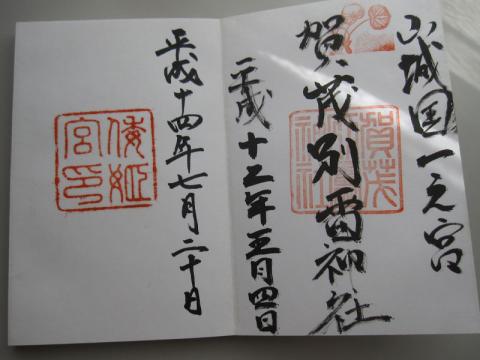 山城国一之宮
賀茂別雷神社
平成十二年五月四日
賀茂
平成十四年七月二十日
倭姫
宮印